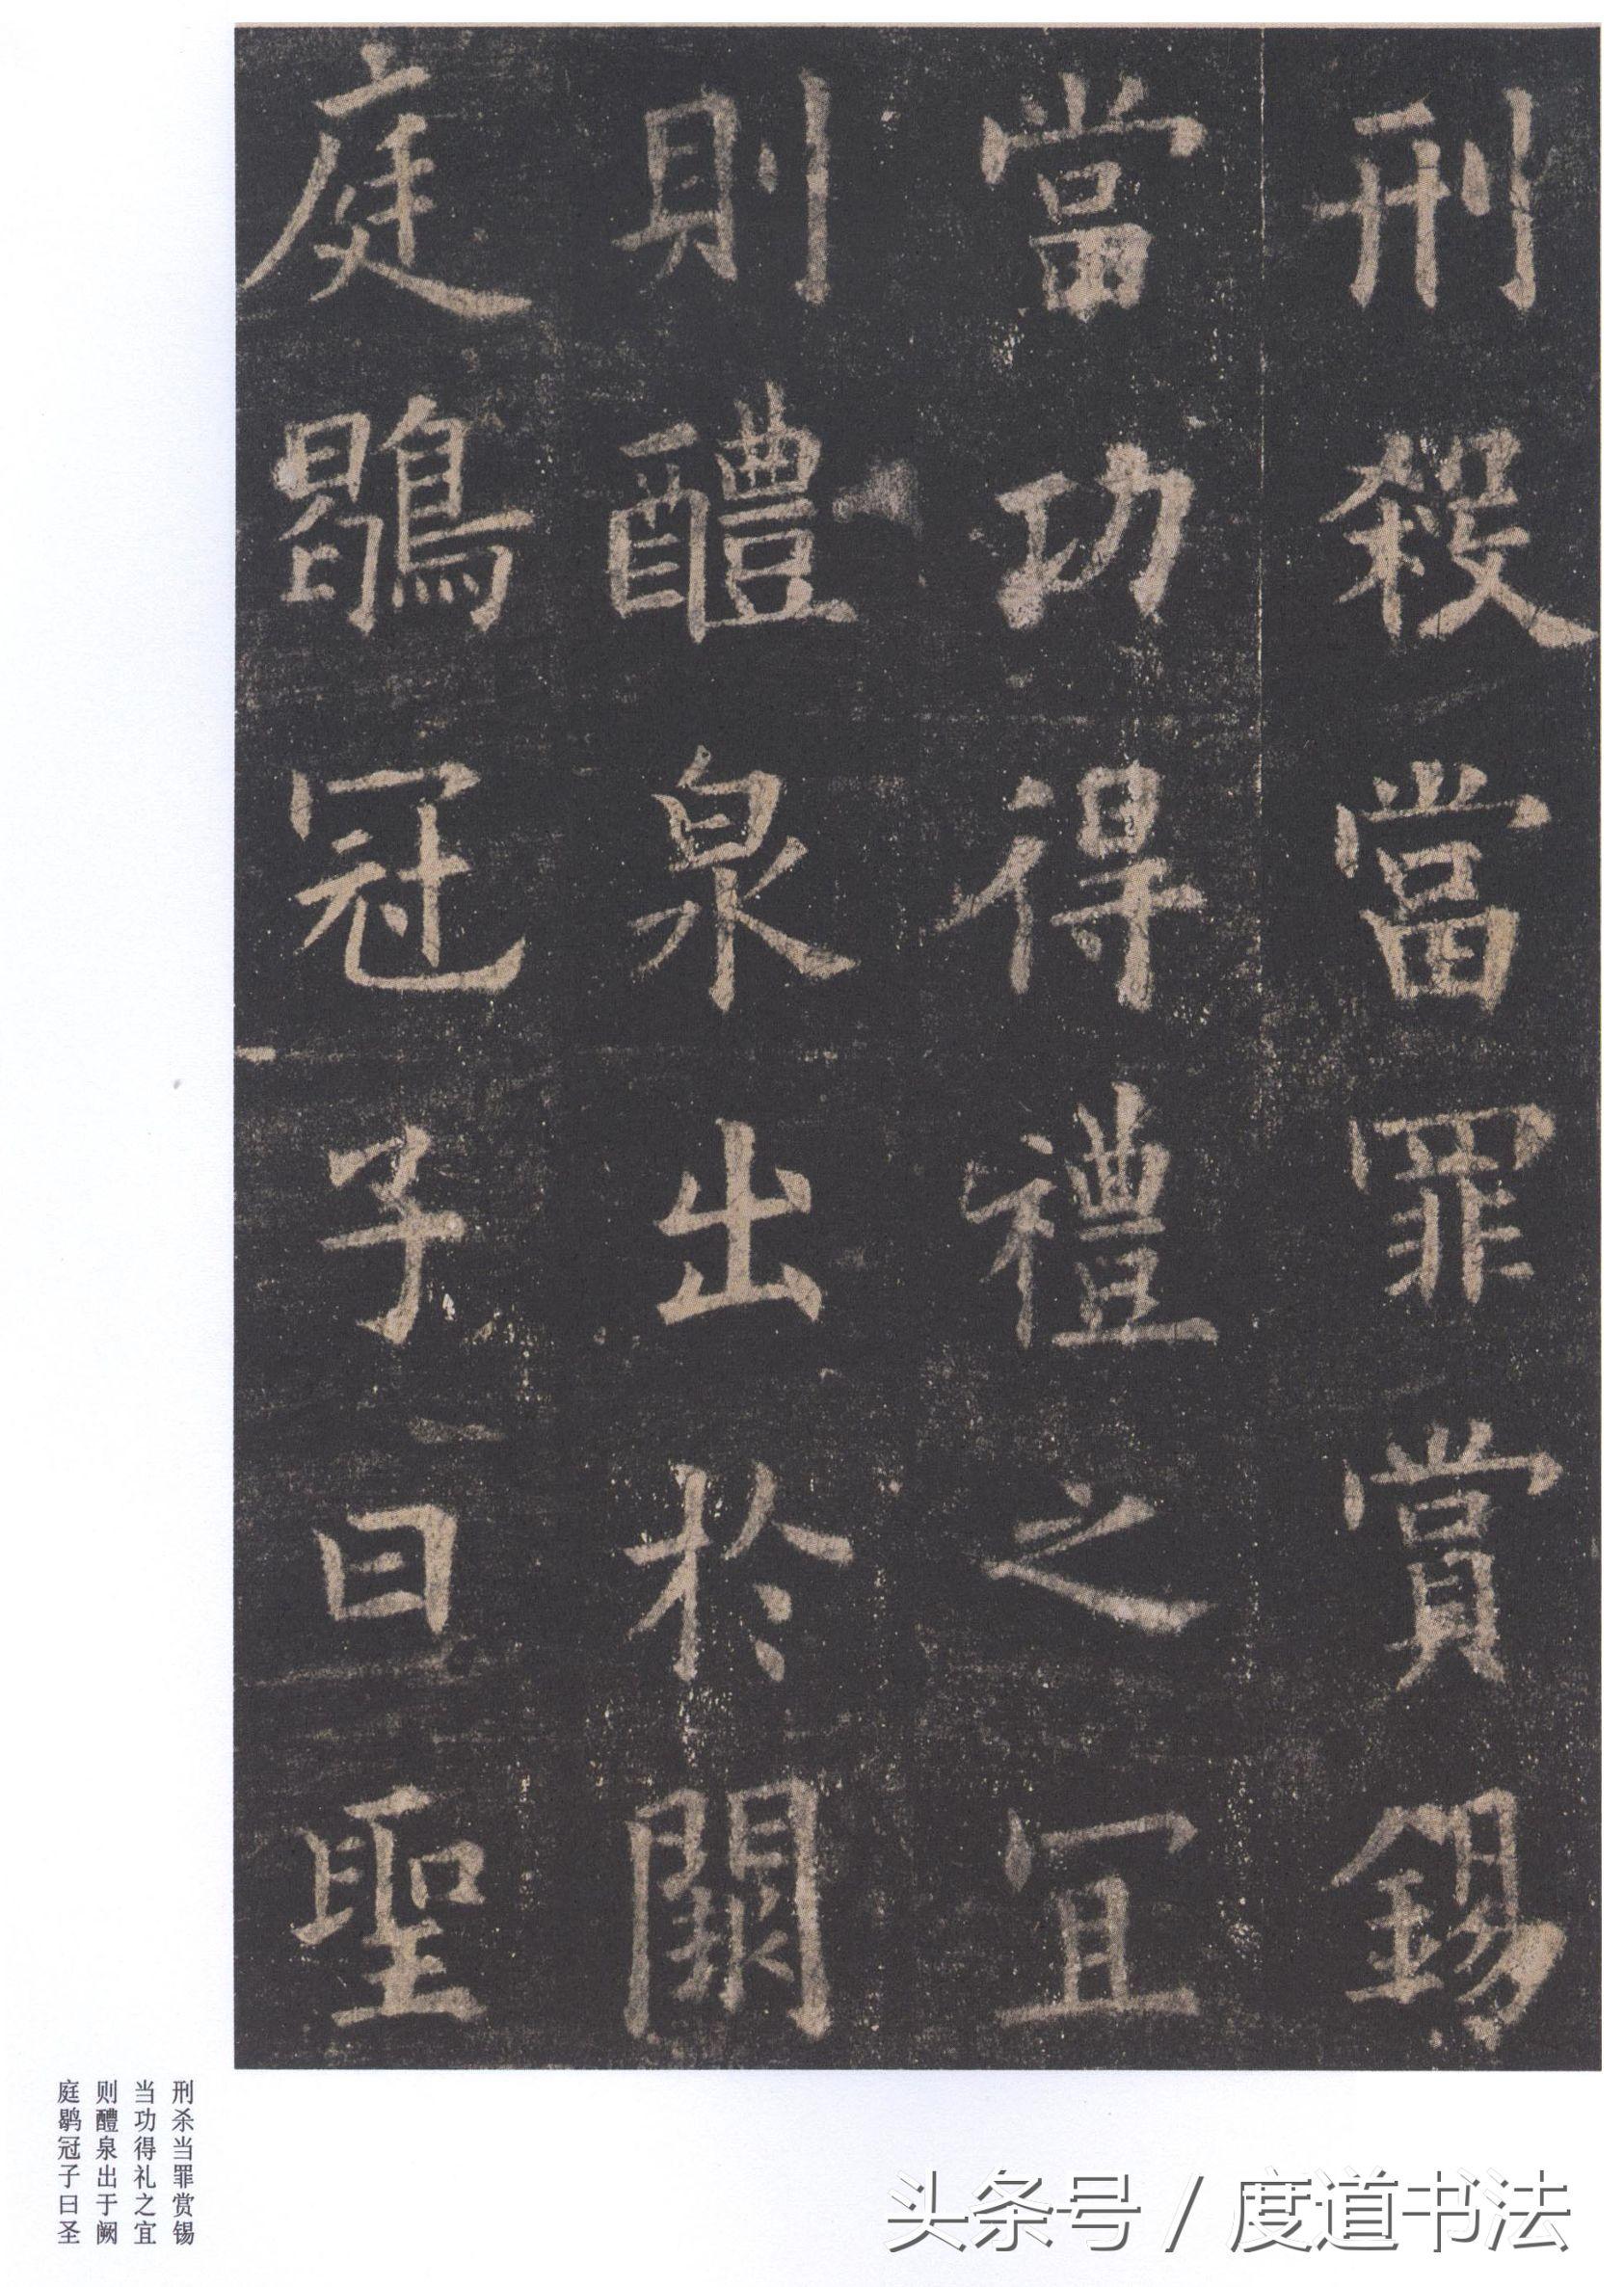 刑殺當罪賞錫
當功得禮之宜
則醴泉出於闕
庭鶡冠子曰聖
刑杀当罪赏锡
当功得礼之宜
则醴泉出于阙
庭鹖冠子曰圣
头条号 / 度道书法